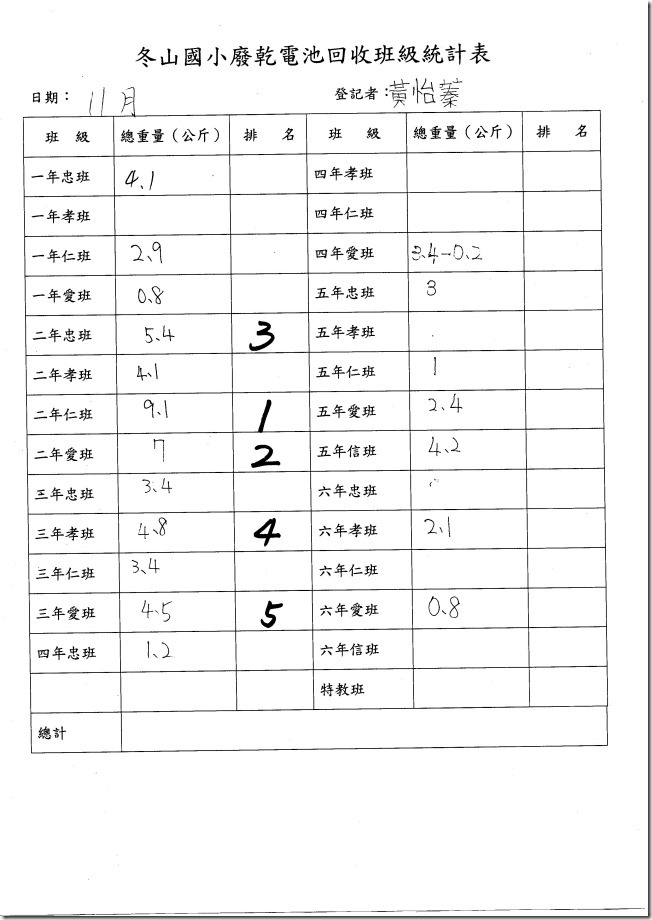 冬山國小廢乾電池回收班級統計表
日期：11月 登記者：黃怡蓁
班 級 總重量（公斤） 排 名 班 級 總重量（公斤） 排 名
一年忠班 4.1 四年孝班
一年孝班 四年仁班
一年仁班 2.9 四年愛班 3.4-0.2
一年愛班 0.8 五年忠班 3
二年忠班 5.4 3 五年孝班
二年孝班 4.1 五年仁班 1
二年仁班 9.1 1 五年愛班 2.4
二年愛班 7 2 五年信班 4.2
三年忠班 3.4 六年忠班
三年孝班 4.8 4 六年孝班 2.1
三年仁班 3.4 六年仁班
三年愛班 4.5 5 六年愛班 0.8
四年忠班 1.2 六年信班
特教班
總計